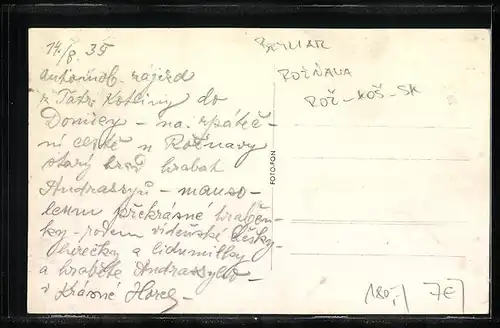 14/8 35
automob. zájezd
z Tatr. Kotliny do
Domicy – na zpáteč-
ní cestě u Rožňavy
starý hrad hrabat
Andrassyů – mauso-
leum překrásné hraběn-
ky – rodem vídeňské češky –
herečky a lidumilky
a hraběte Andrassyho –
v Krásné Horce –
FOTOFON
BETLIAR
ROŽŇAVA
ROŽ-KOŠ-SK
180,-/ 7€/